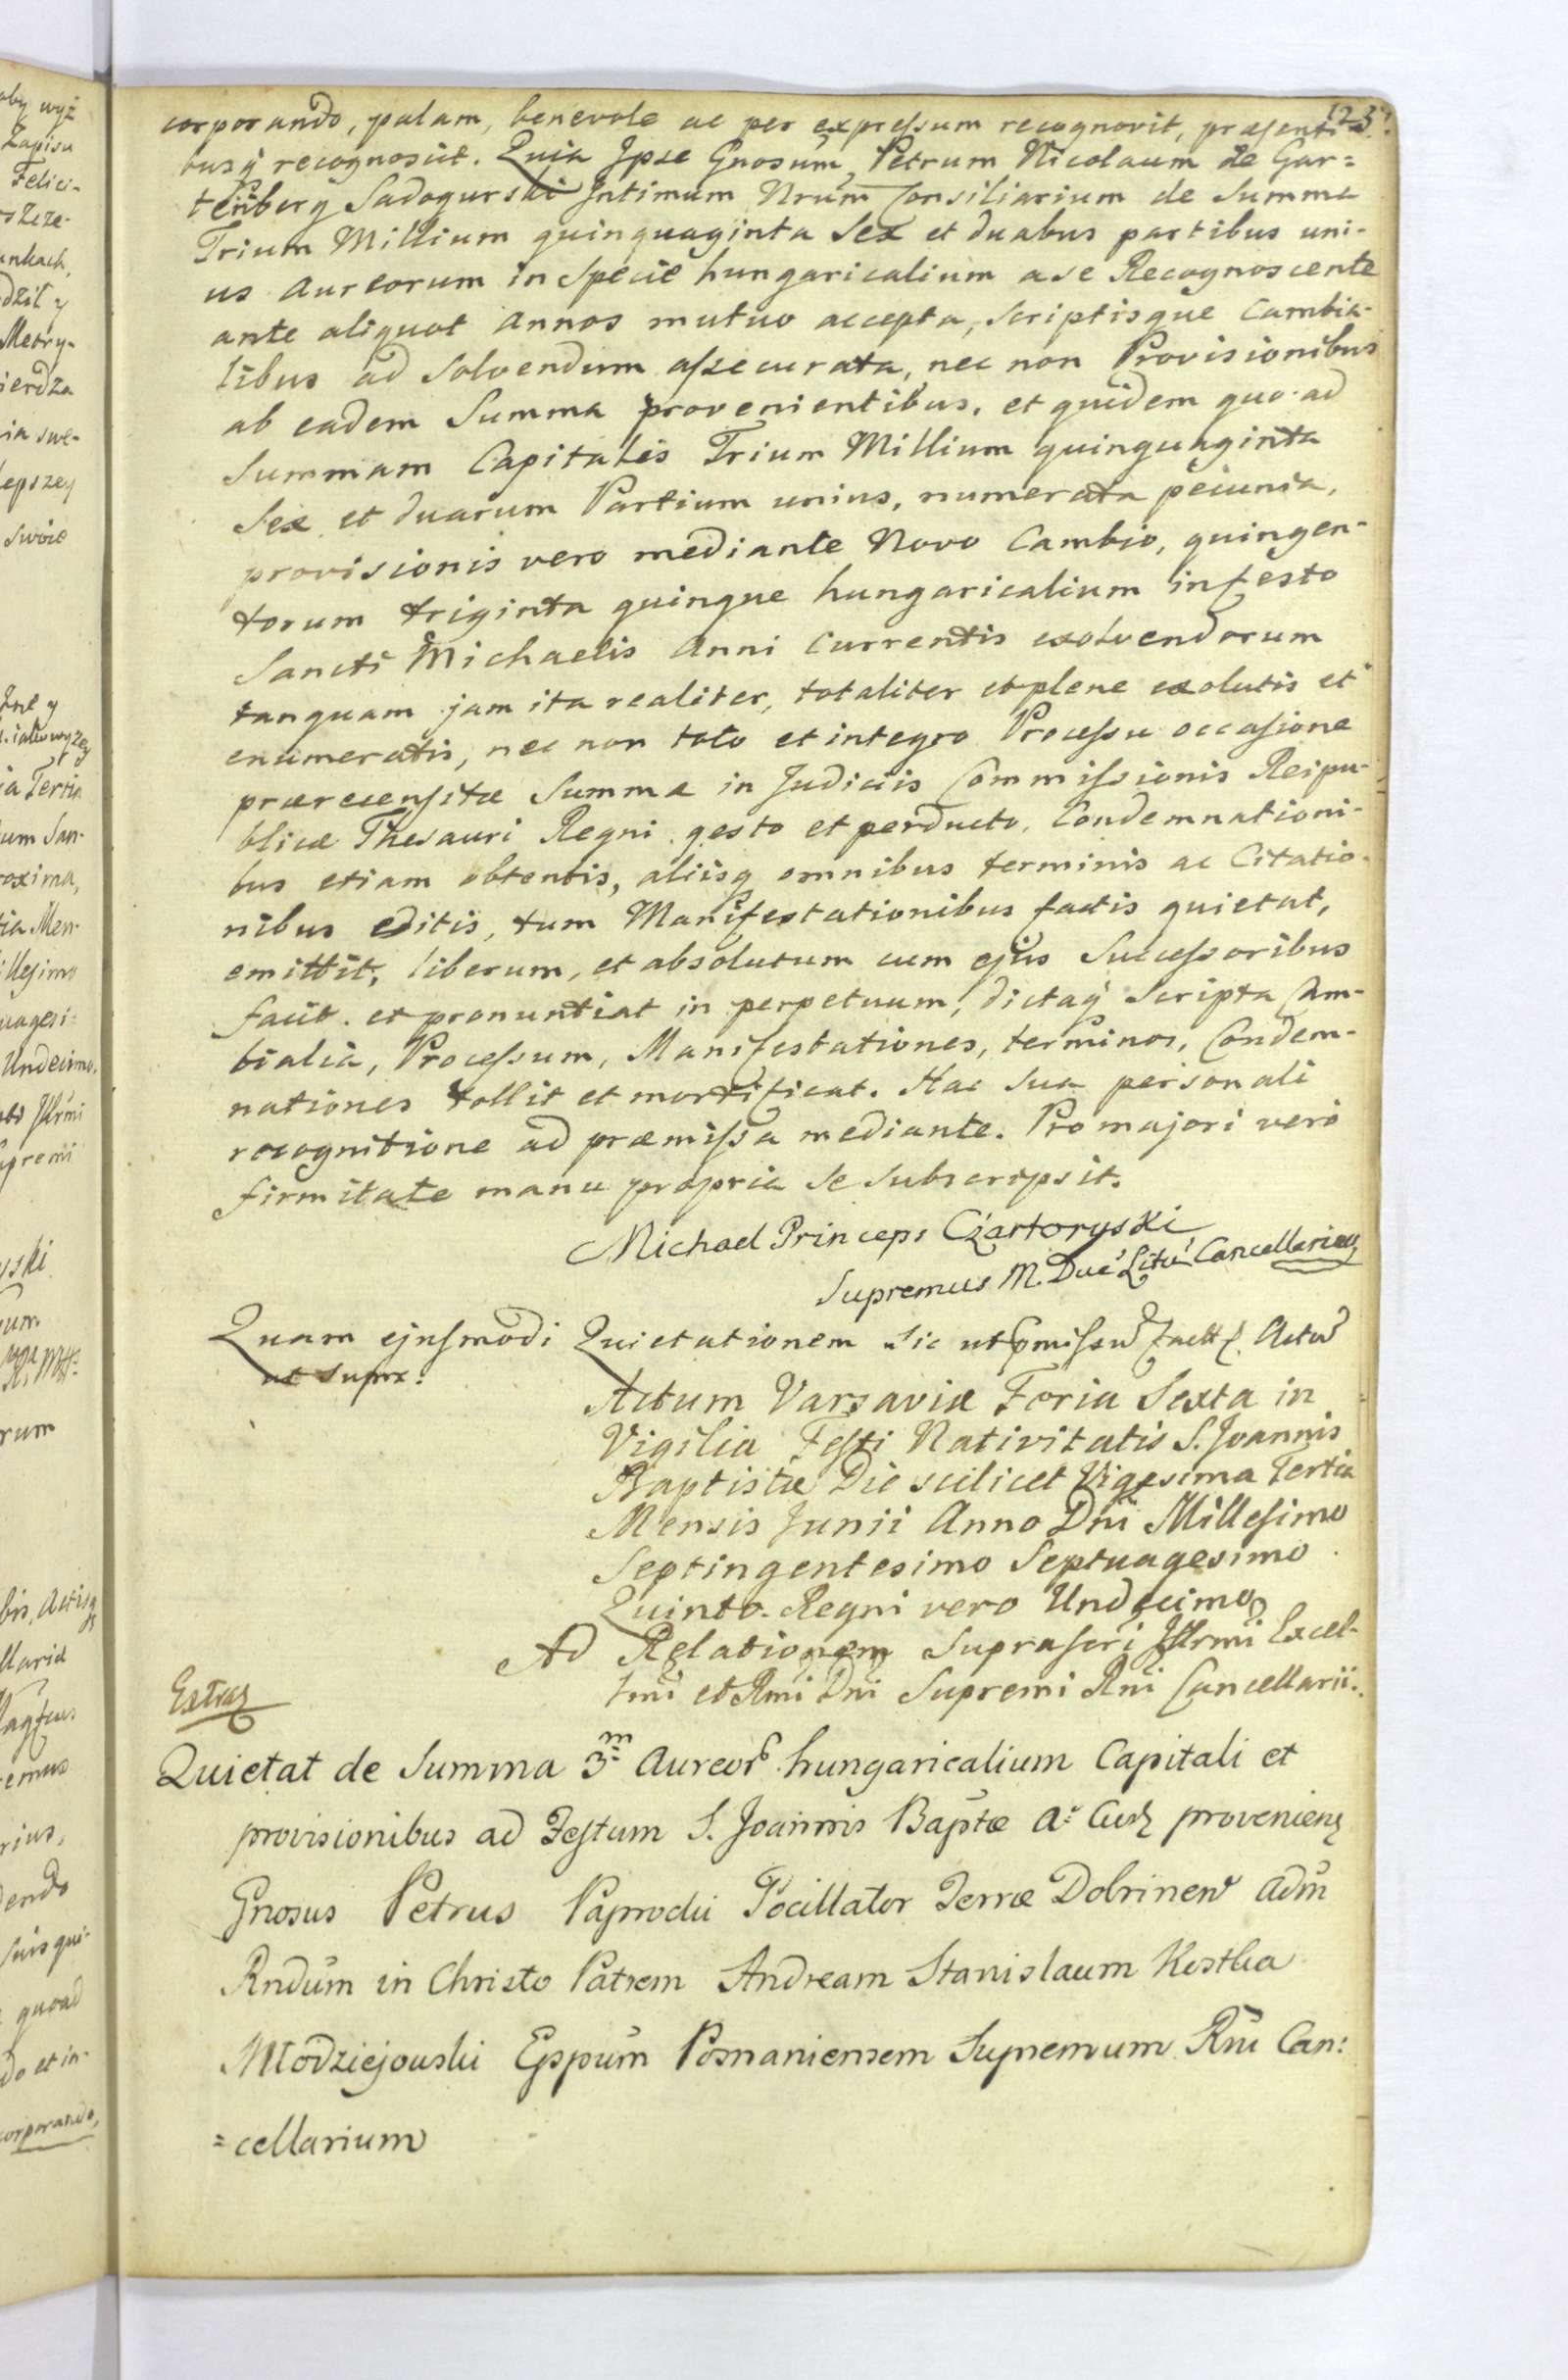 123.
corporando, palam, benevole ac per expressum recognovit, præsenti-
busq recognoscit. Quia Ipse Gnosum Petrum Nicolaum de Gar=
tenberg Sadogurski Intimum Nrum Consiliarium de Summa
Trium Millium quinquaginta Sex et duabus partibus uni-
us Aureorum in Specie hungaricalium a se Recognoscente
ante aliquot annos mutuo accepta, scriptisque Cambia-
libus ad solvendum assecurata, nec non Provisionibus
ab eadem Summa provenientibus, et quidem quo ad
Summam Capitalis Trium Millium quinquaginta
Sex et duarum Partium unius, numerata pecunia,
provisionis vero mediante Novo Cambio, quingen-
torum triginta quinque hungaricalium in festo
Sancti Michaelis Anni Currentis exolvendorum
tanquam jam ita realiter, totaliter et plene exolutis et
enumeratis, nec non toto et integro Processu occasione
præreсensitæ Summæ in Judiciis Commissionis Reipu-
blicæ Thesauri Regni gesto et perducto, Condemnationi-
bus etiam obtentis, aliisq omnibus terminis ac Citatio-
nibus editis, tum Manifestationibus factis quietat,
emittit, liberum, et absolutum cum ejus Successoribus
facit. et pronuntiat in perpetuum, dictaq Scripta Cam-
bialia, Processum, Manifestationes, terminos, Condem-
nationes tollit et mortificat. Hac sua personali
recognitione ad præmissa mediante. Pro majori vero
firmitate manu propria se subscripsit.
Michael Princeps Czartoryski
Supremus M. Duc. Litu. Cancellarius
Quam ejusmodi Quietationem sic ut pmissu factt. Actu
ut supra.
Actum Varsaviæ Feria Sexta in
Vigilia Festi Nativitatis S. Joannis
Baptistæ Die scilicet Vigesima Tertia
Mensis Junii Anno Dni Millesimo
Septingentesimo Septuagesimo
Quinto. Regni vero Undecimo
Ad Relationem Suprascri Illrmi Excel-
lmi et Rmi Dni Supremi Rni Cancellarii.
Extrad
Quietat de Summa 3m Aureor hungaricalium Capitali et
provisionibus ad Festum S. Joannis Baptæ A: Cur provenien
Gnosus Petrus Paprocki Pocillator Terræ Dobrinen Adm
Rndum in Christo Patrem Andream Stanislaum Kostka
Młodziejowski Eppum Posnaniensem Supremum Rni Can:
=cellarium